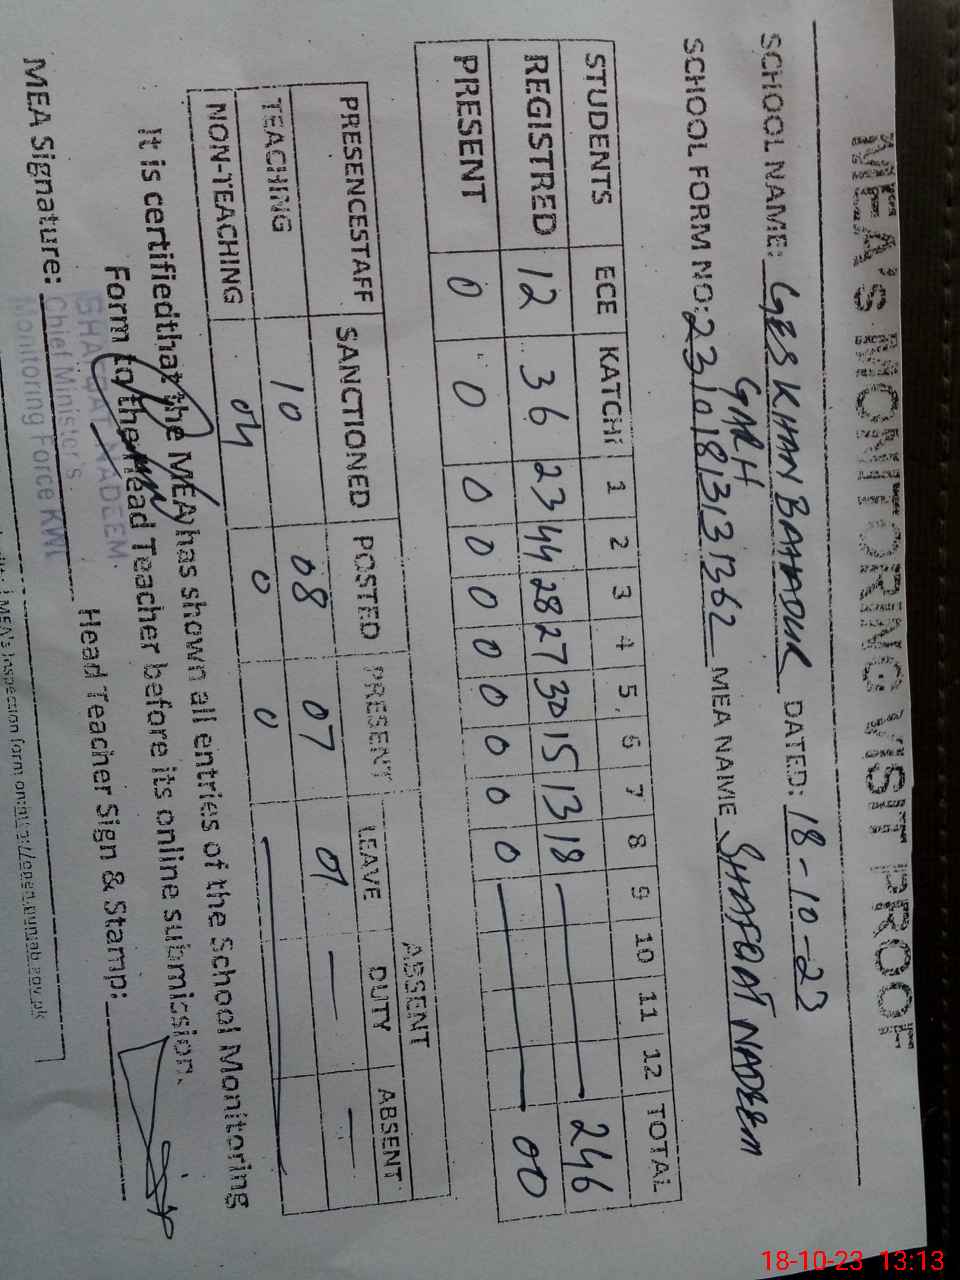 MEA's MONITORING VISIT PROOF
SCHOOL NAME: GES KHAN BAHADUR DATED: 18-10-23
GARH
SCHOOL FORM NO: MEA NAME SHAFQAT NADEEM
STUDENTS ECE KATCHI 1 2 3 4 5 6 7 8 9 10 11 12 TOTAL
REGISTRED 12 36 23 44 28 27 30 15 13 18 246
PRESENT 0 0 0 0 0 0 0 0 0 0 00
ABSENT
PRESENCESTAFF SANCTIONED POSTED PRESENT LEAVE DUTY ABSENT
TEACHING 10 08 07 01 — —
NON-TEACHING 04 0 0
It is certifiedthat the MEA has shown all entries of the School Monitoring
Form to the Head Teacher before its online submission.
MEA Signature: Head Teacher Sign & Stamp:
SHAFQAT NADEEM.
Chief Minister's
Monitoring Force KWL
MEA's Inspection form on:
18-10-23 13:13